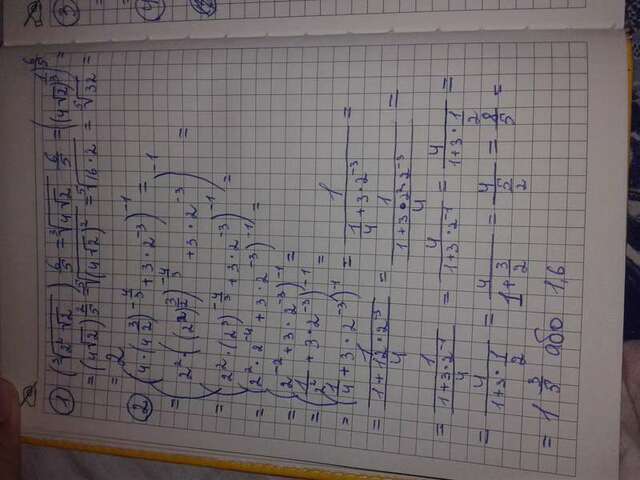 ① (∛(2²·√2))^(6/5) = ∛(4√2)^(6/5) = ((4√2)^(1/3))^(6/5) =
= (4√2)^(2/5) = ⁵√((4√2)²) = ⁵√(16·2) = ⁵√32 =
= 2
② (4·(4^(3/2))^(-4/3) + 3·2^(-3))^(-1) =
= (2²·((2²)^(3/2))^(-4/3) + 3·2^(-3))^(-1) =
= (2²·(2³)^(-4/3) + 3·2^(-3))^(-1) =
= (2²·2^(-4) + 3·2^(-3))^(-1) =
= (2^(-2) + 3·2^(-3))^(-1) =
= (1/2² + 3·2^(-3))^(-1) =
= (1/4 + 3·2^(-3))^(-1) = 1/(1/4 + 3·2^(-3)) =
= 1/((1+12·2^(-3))/4) = 1/((1+3·2²·2^(-3))/4) =
= 1/((1+3·2^(-1))/4) = 4/(1+3·2^(-1)) = 4/(1+3·1/2) =
= 4/(1+3·1/2) = 4/(1+3/2) = 4/(5/2) = 8/5 =
= 1 3/5 або 1,6
③